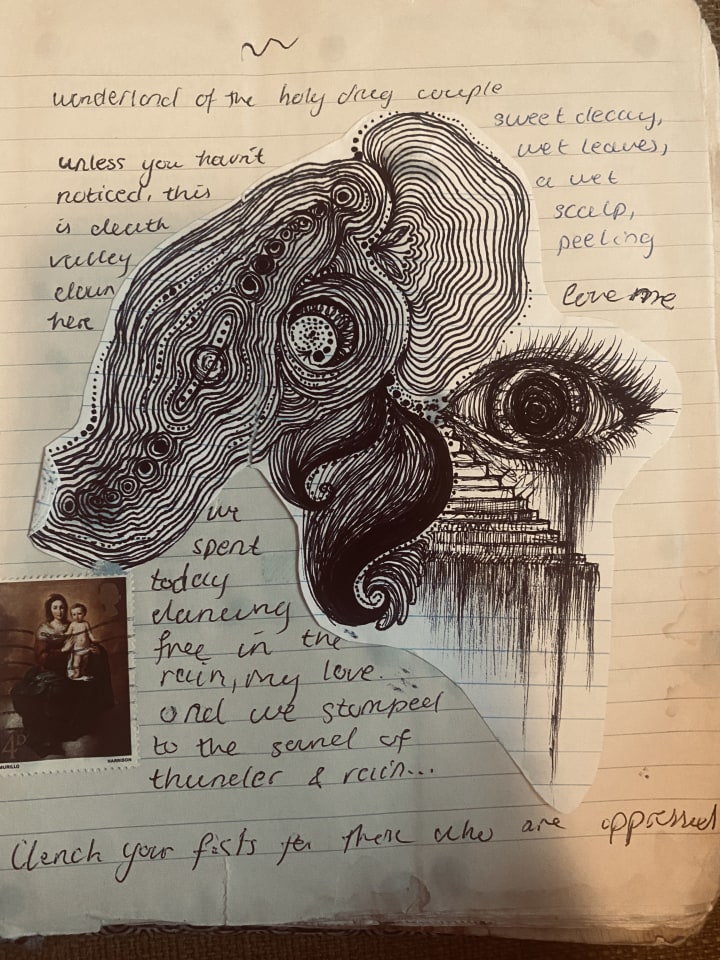 wonderland of the holy drug couple
sweet decay,
wet leaves,
a wet
scalp,
peeling
love me
unless you havn't
noticed, this
is death
valley
down
here
we
spent
today
dancing
free in the
rain, my love.
and we stomped
to the sound of
thunder & rain...
4D
MURILLO
HARRISON
Clench your fists for those who are oppressed